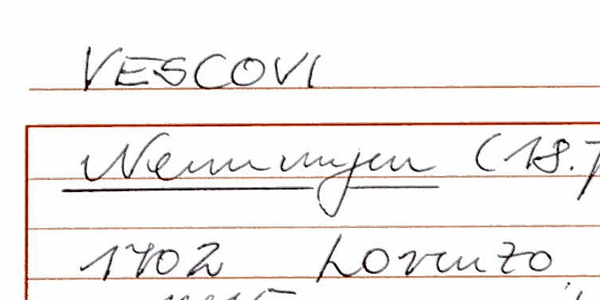 VESCOVI
Nemmingen (18.7
1702 Lorenzo